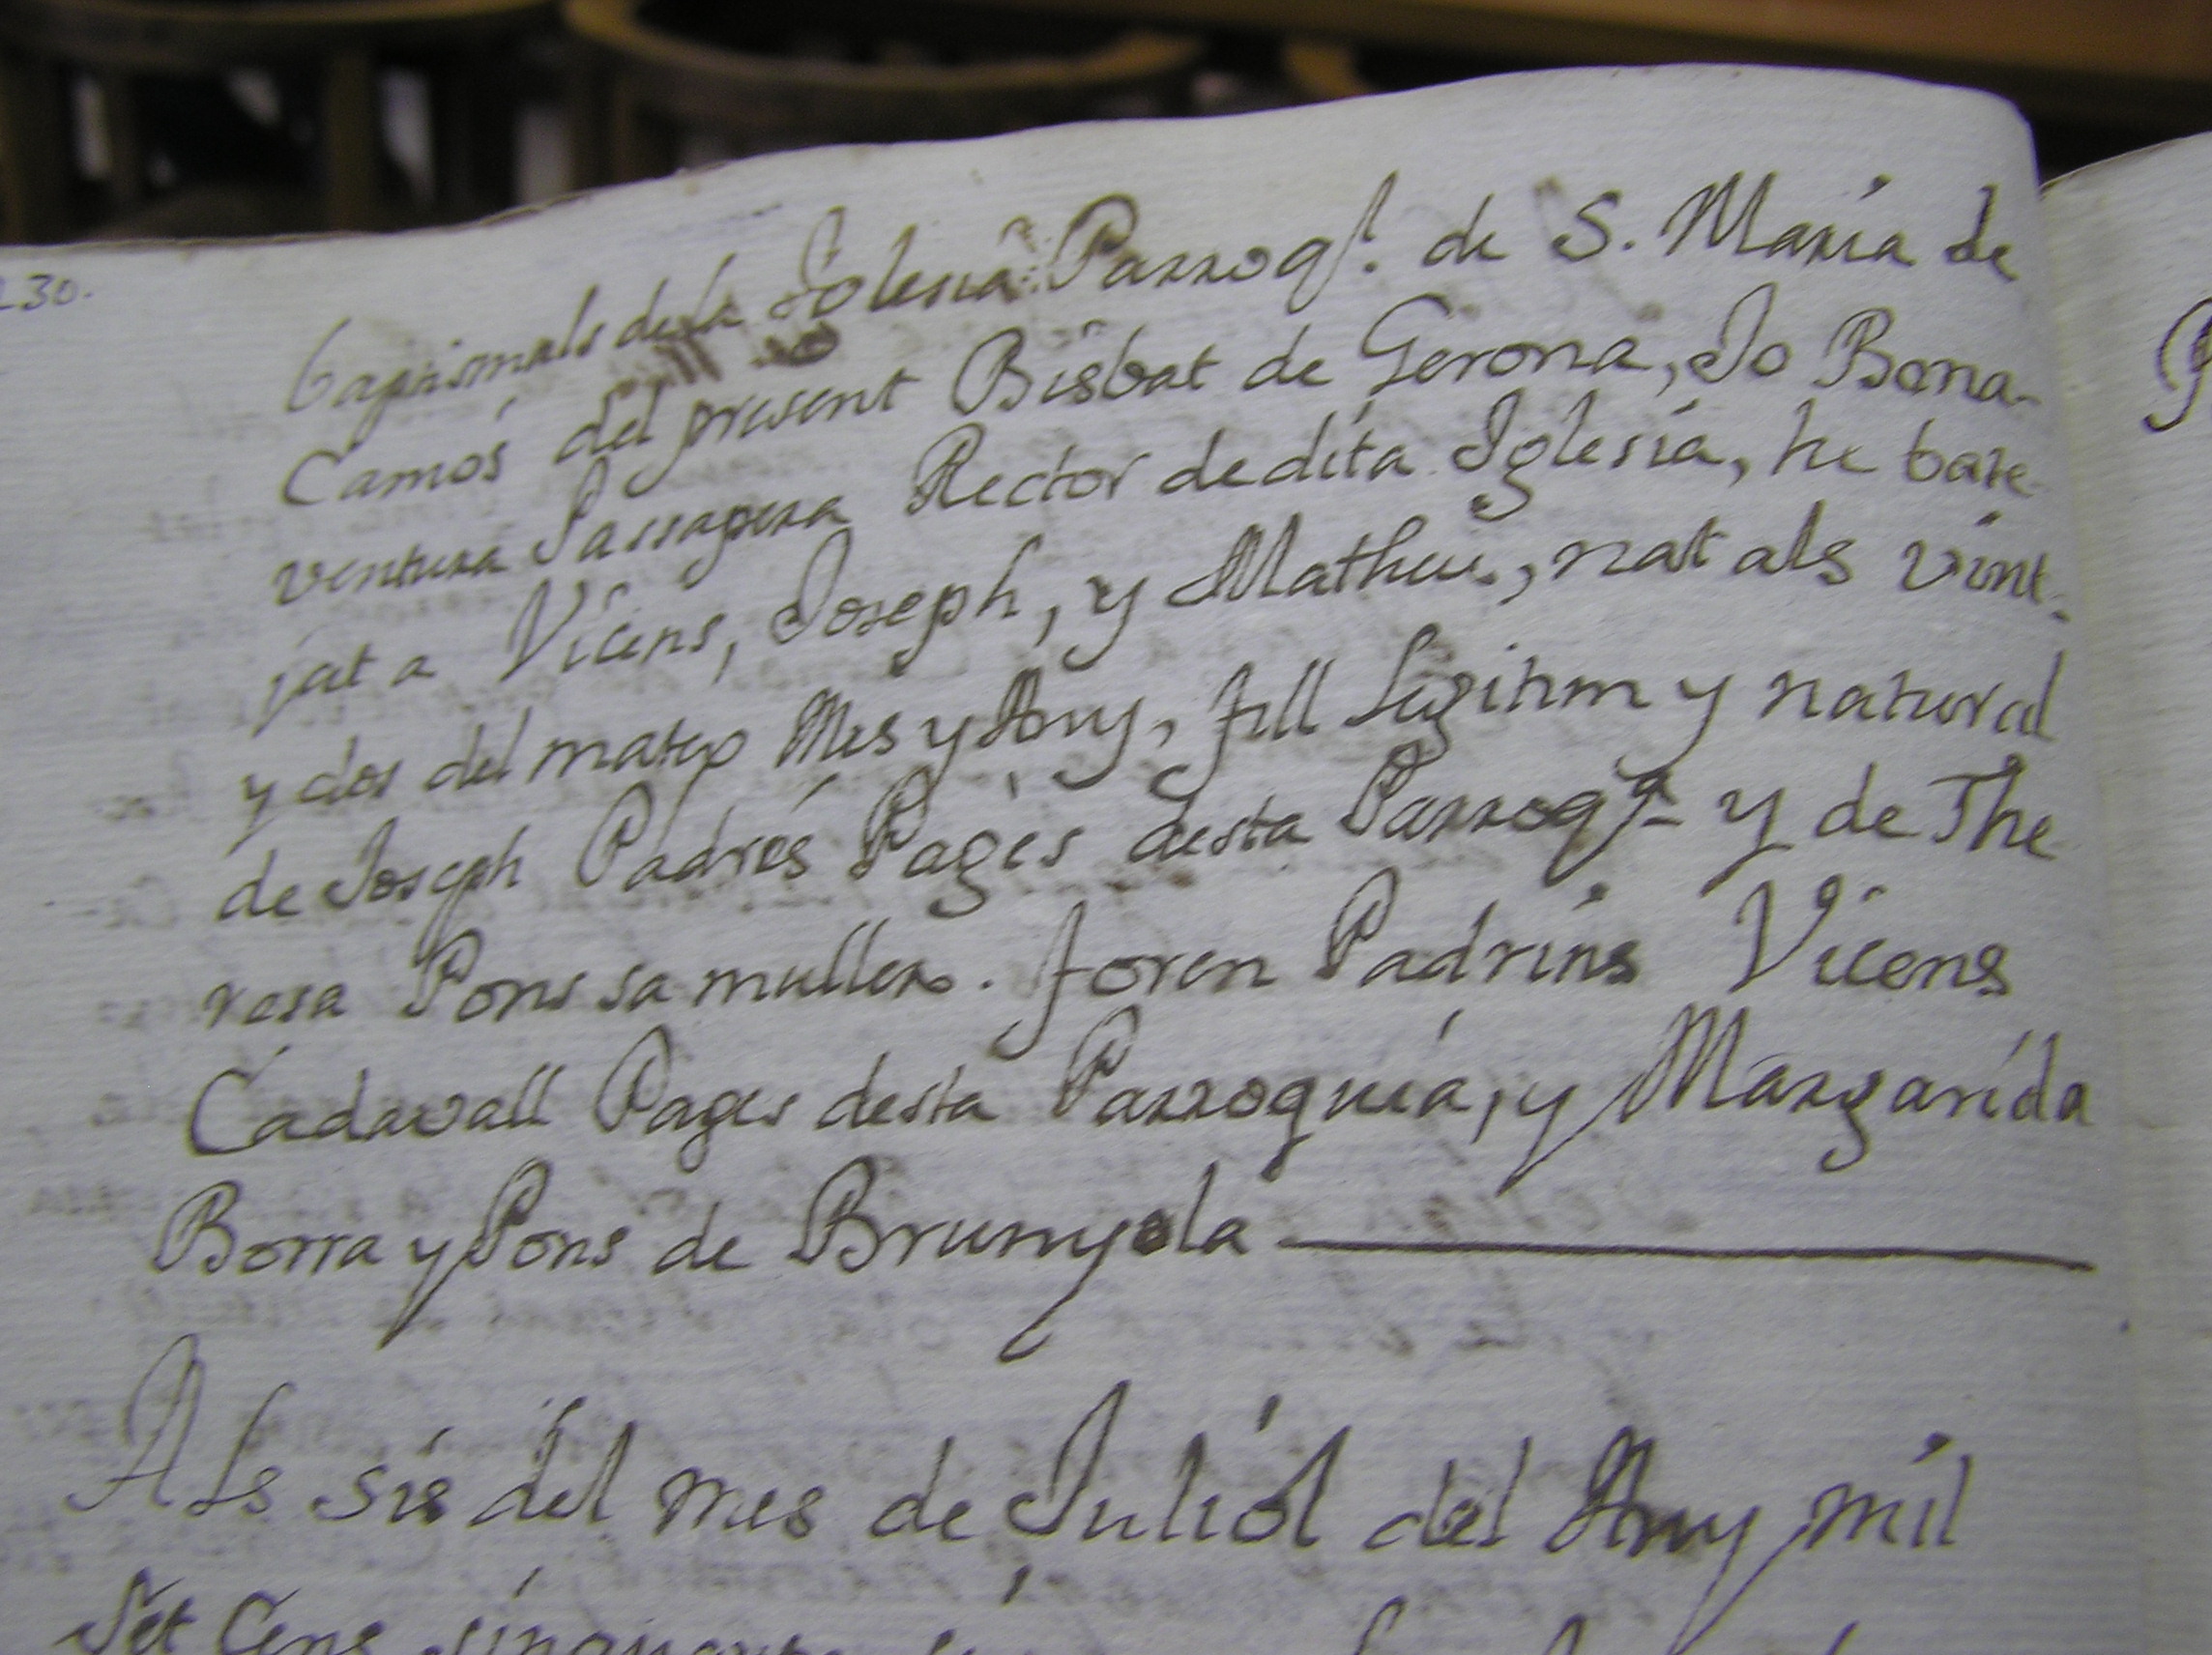 230.
baptismals de la Iglesia Parroql. de S. Maria de
Camos del present Bisbat de Gerona, Jo Bona-
ventura Passapera Rector de dita Iglesia, he bate-
jat a Vicens, Joseph, y Matheu, nat als vint-
y dos del mateix Mes y Any, fill Legitim y natural
de Joseph Padrés Pagés desta Parroqa. y de The
resa Pons sa muller. foren Padrins Vicens
Cadavall Pages desta Parroquia, y Margarida
Borra y Pons de Brunyola
Als sis del mes de Juliól del Any mil
Set Cens sinquanta